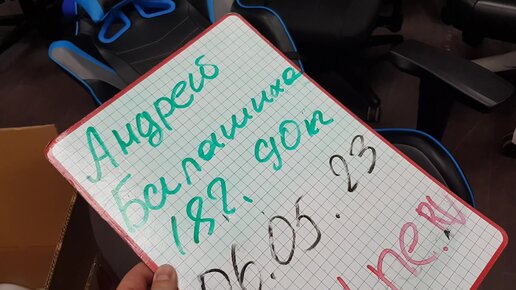 Андрей
Балашиха
182. 90 кг
06.05.23
ne.RU